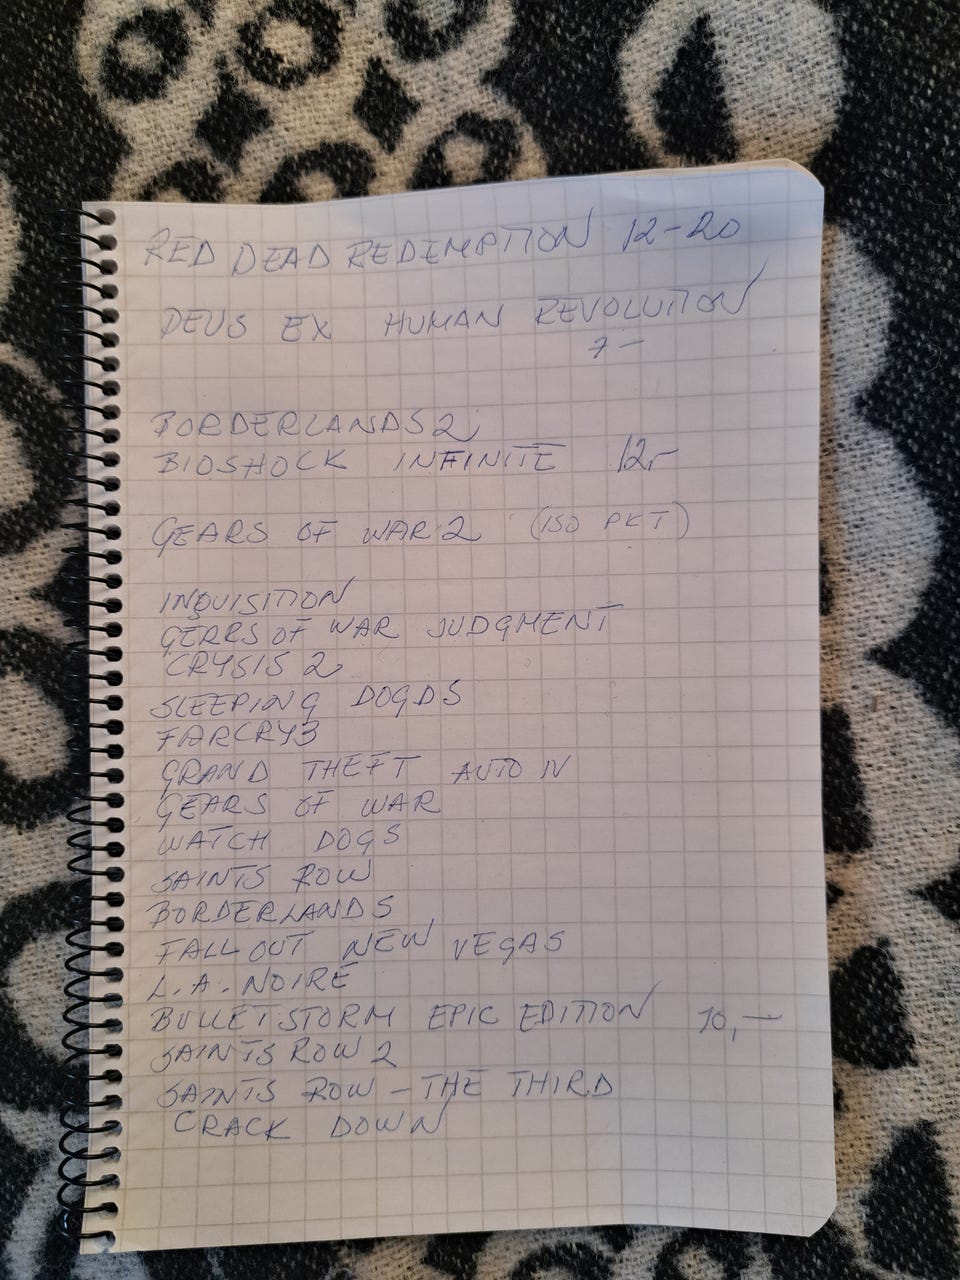 RED DEAD REDEMPTION 12-20
DEUS EX HUMAN REVOLUTION
7-
BORDERLANDS 2
BIOSHOCK INFINITE 12,-
GEARS OF WAR 2 (150 PKT)
INQUISITION
GERRS OF WAR JUDGMENT
CRYSIS 2
SLEEPING DOGDS
FARCRY3
GRAND THEFT AUTO IV
GEARS OF WAR
WATCH DOGS
SAINTS ROW
BORDERLANDS
FALLOUT NEW VEGAS
L.A. NOIRE
BULLETSTORM EPIC EDITION 10,-
SAINTS ROW 2
SAINTS ROW - THE THIRD
CRACK DOWN